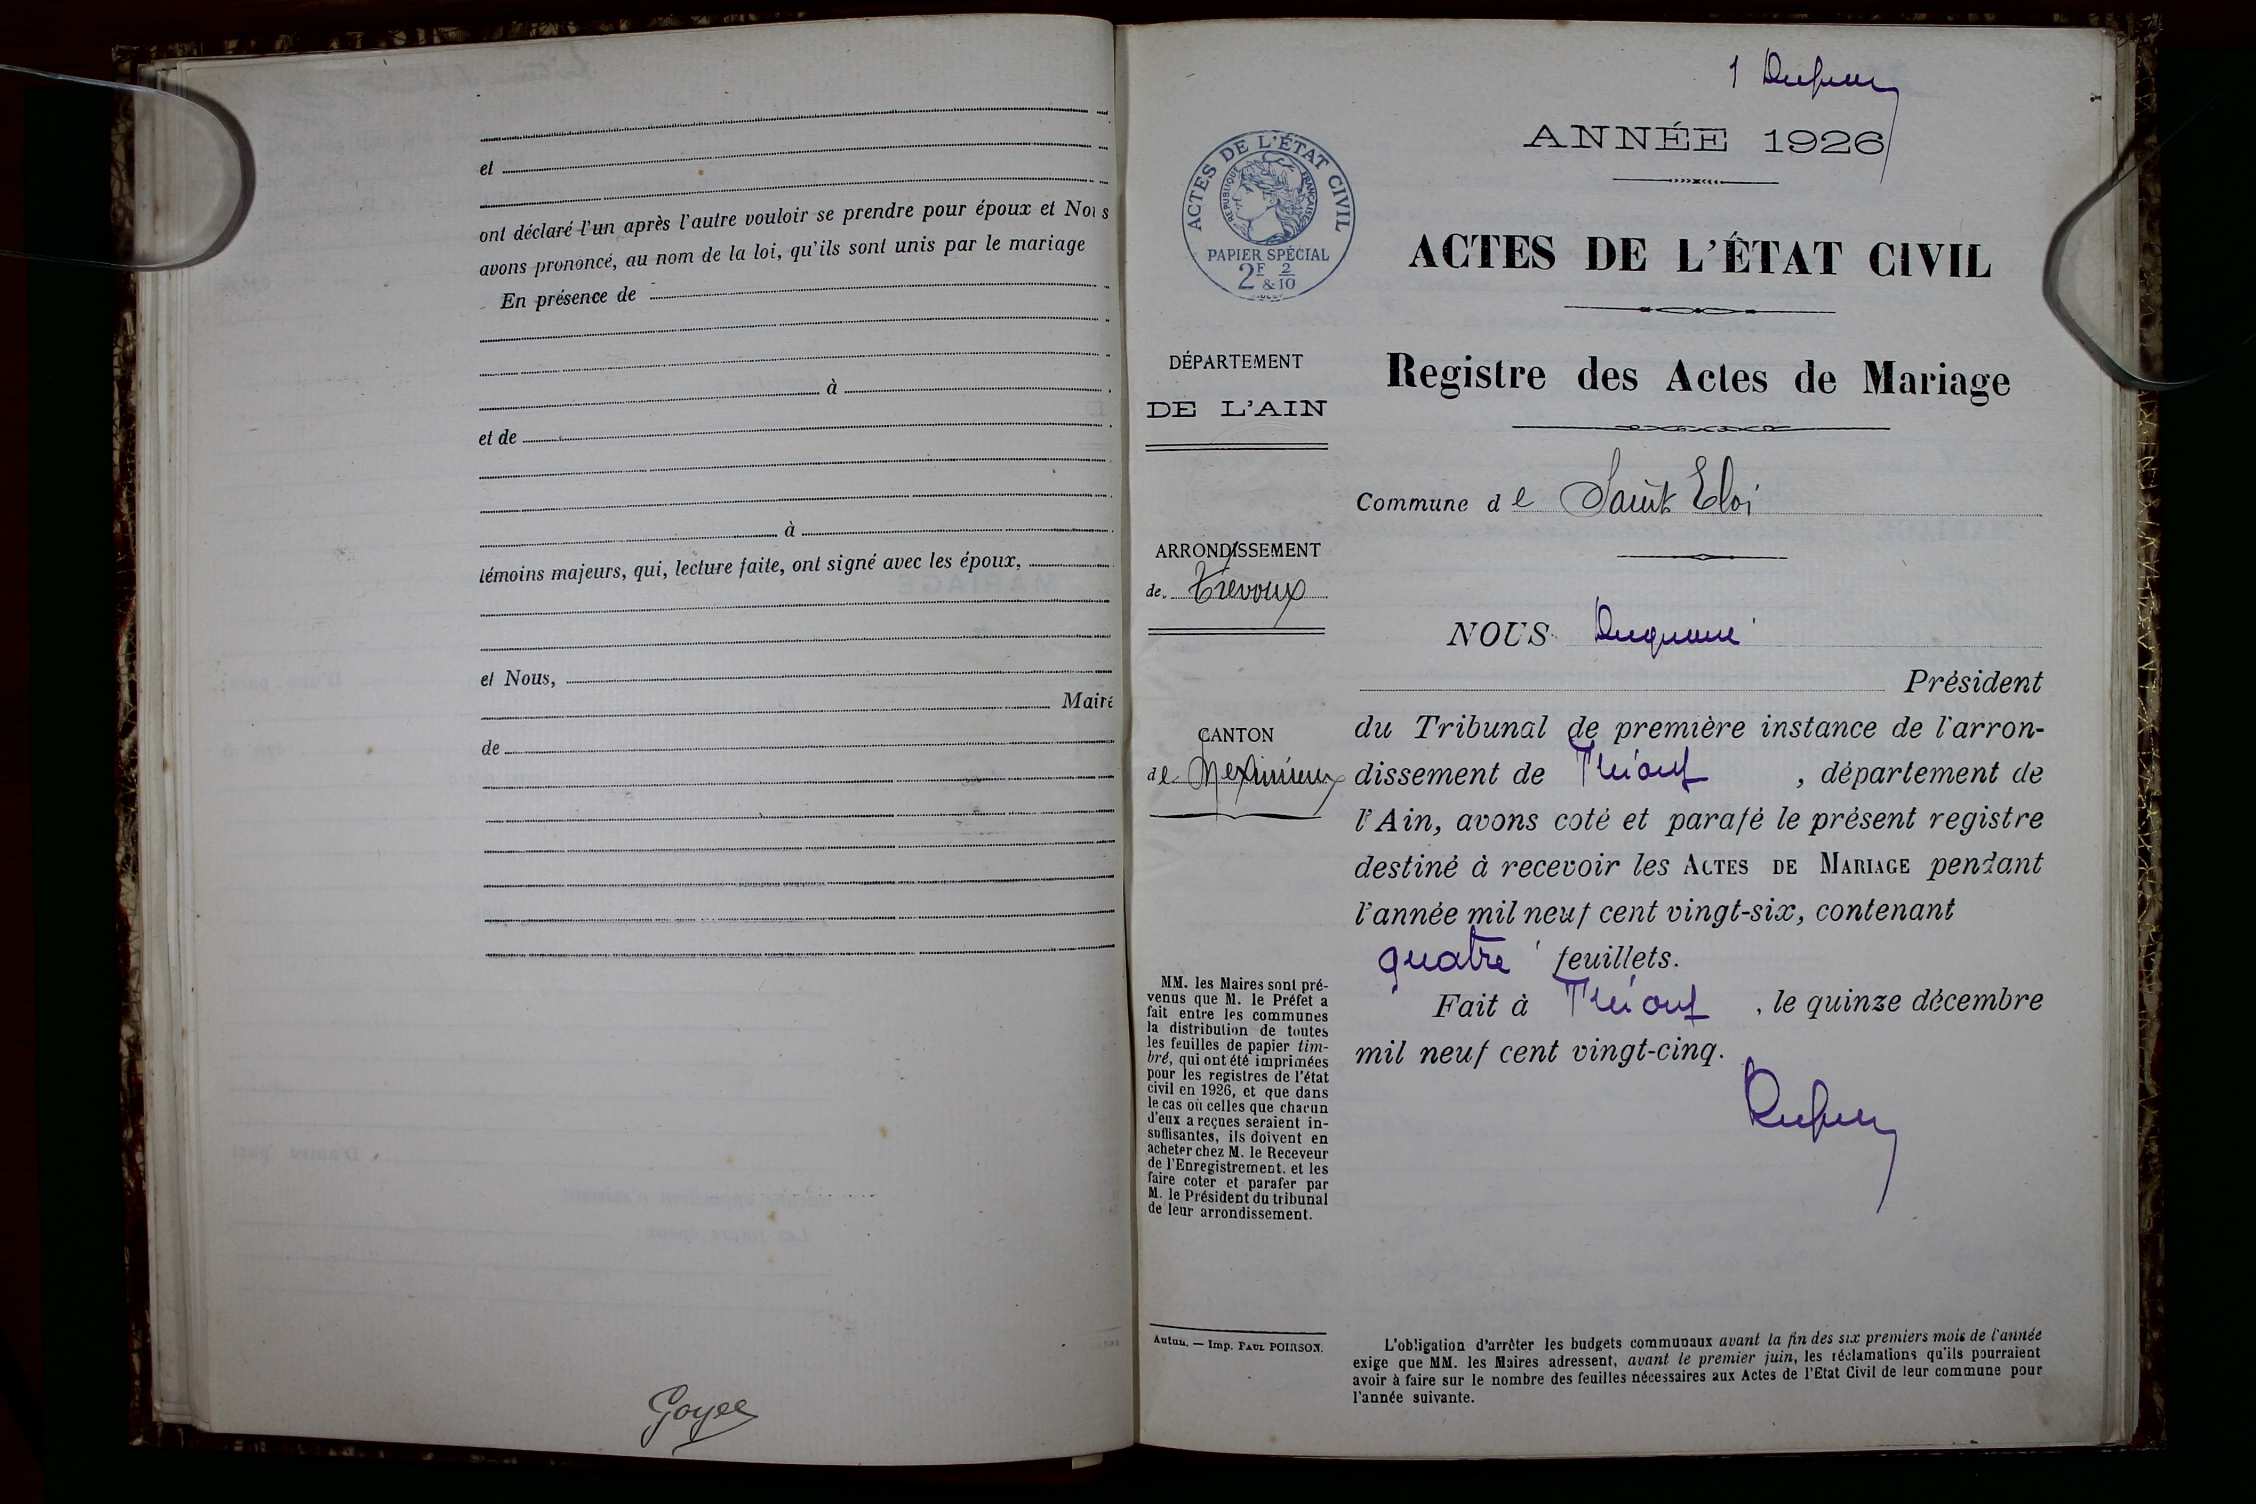 et
ont déclaré l'un après l'autre vouloir se prendre pour époux et Nous
avons prononcé, au nom de la loi, qu'ils sont unis par le mariage
En présence de
à
et de
à
témoins majeurs, qui, lecture faite, ont signé avec les époux,
et Nous,
Maire
de
Goyee
1
ANNÉE 1926
ACTES DE L'ÉTAT CIVIL
RÉPUBLIQUE FRANÇAISE
PAPIER SPÉCIAL
2F & 2/10
ACTES DE L'ÉTAT CIVIL
Registre des Actes de Mariage
DÉPARTEMENT
DE L'AIN
ARRONDISSEMENT
de Trévoux
CANTON
de Meximieux
MM. les Maires sont pré-
venus que M. le Préfet a
fait entre les communes
la distribution de toutes
les feuilles de papier tim-
bré, qui ont été imprimées
pour les registres de l'état
civil en 1926, et que dans
le cas où celles que chacun
d'eux a reçues seraient in-
suffisantes, ils doivent en
acheter chez M. le Receveur
de l'Enregistrement. et les
faire coter et parafer par
M. le Président du tribunal
de leur arrondissement.
Autun. — Imp. PAUL POIRSON.
Commune de Saint Eloi
NOUS
Président
du Tribunal de première instance de l'arron-
dissement de Trévoux, département de
l'Ain, avons coté et parafé le présent registre
destiné à recevoir les ACTES DE MARIAGE pendant
l'année mil neuf cent vingt-six, contenant
quatre feuillets.
Fait à Trévoux, le quinze décembre
mil neuf cent vingt-cinq.
L'obligation d'arrêter les budgets communaux avant la fin des six premiers mois de l'année
exige que MM. les Maires adressent, avant le premier juin, les réclamations qu'ils pourraient
avoir à faire sur le nombre des feuilles nécessaires aux Actes de l'Etat Civil de leur commune pour
l'année suivante.